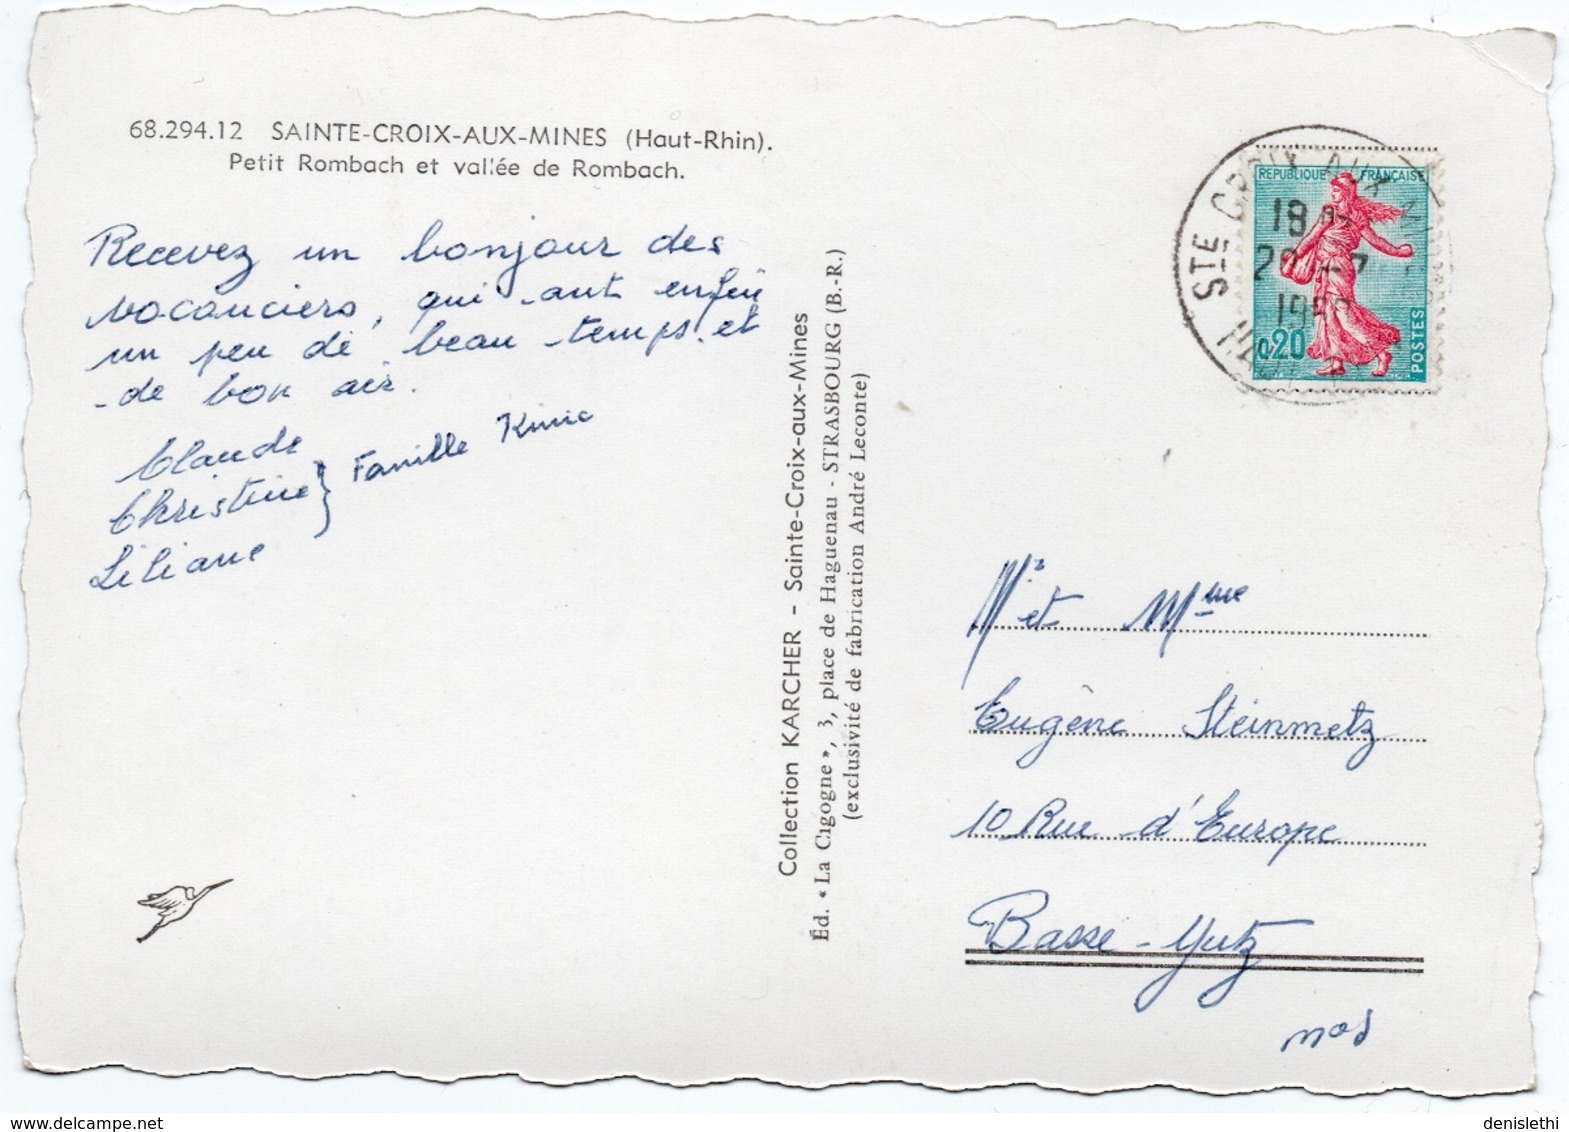 68.294.12 SAINTE-CROIX-AUX-MINES (Haut-Rhin).
Petit Rombach et vallée de Rombach.
Recevez un bonjour des
vacanciers, qui ont enfin
un peu de beau temps et
de bon air.
Claude
Christine } Famille
Liliane
Collection KARCHER - Sainte-Croix-aux-Mines
Éd. « La Cigogne », 3, place de Haguenau - STRASBOURG (B.-R.)
(exclusivité de fabrication André Leconte)
STE CROIX AUX
18
REPUBLIQUE FRANÇAISE
0,20
POSTES
Mr et Mme
Eugène Steinmetz
10 Rue d'Europe
Basse-Yutz
Mos
delcampe.net
denislethi